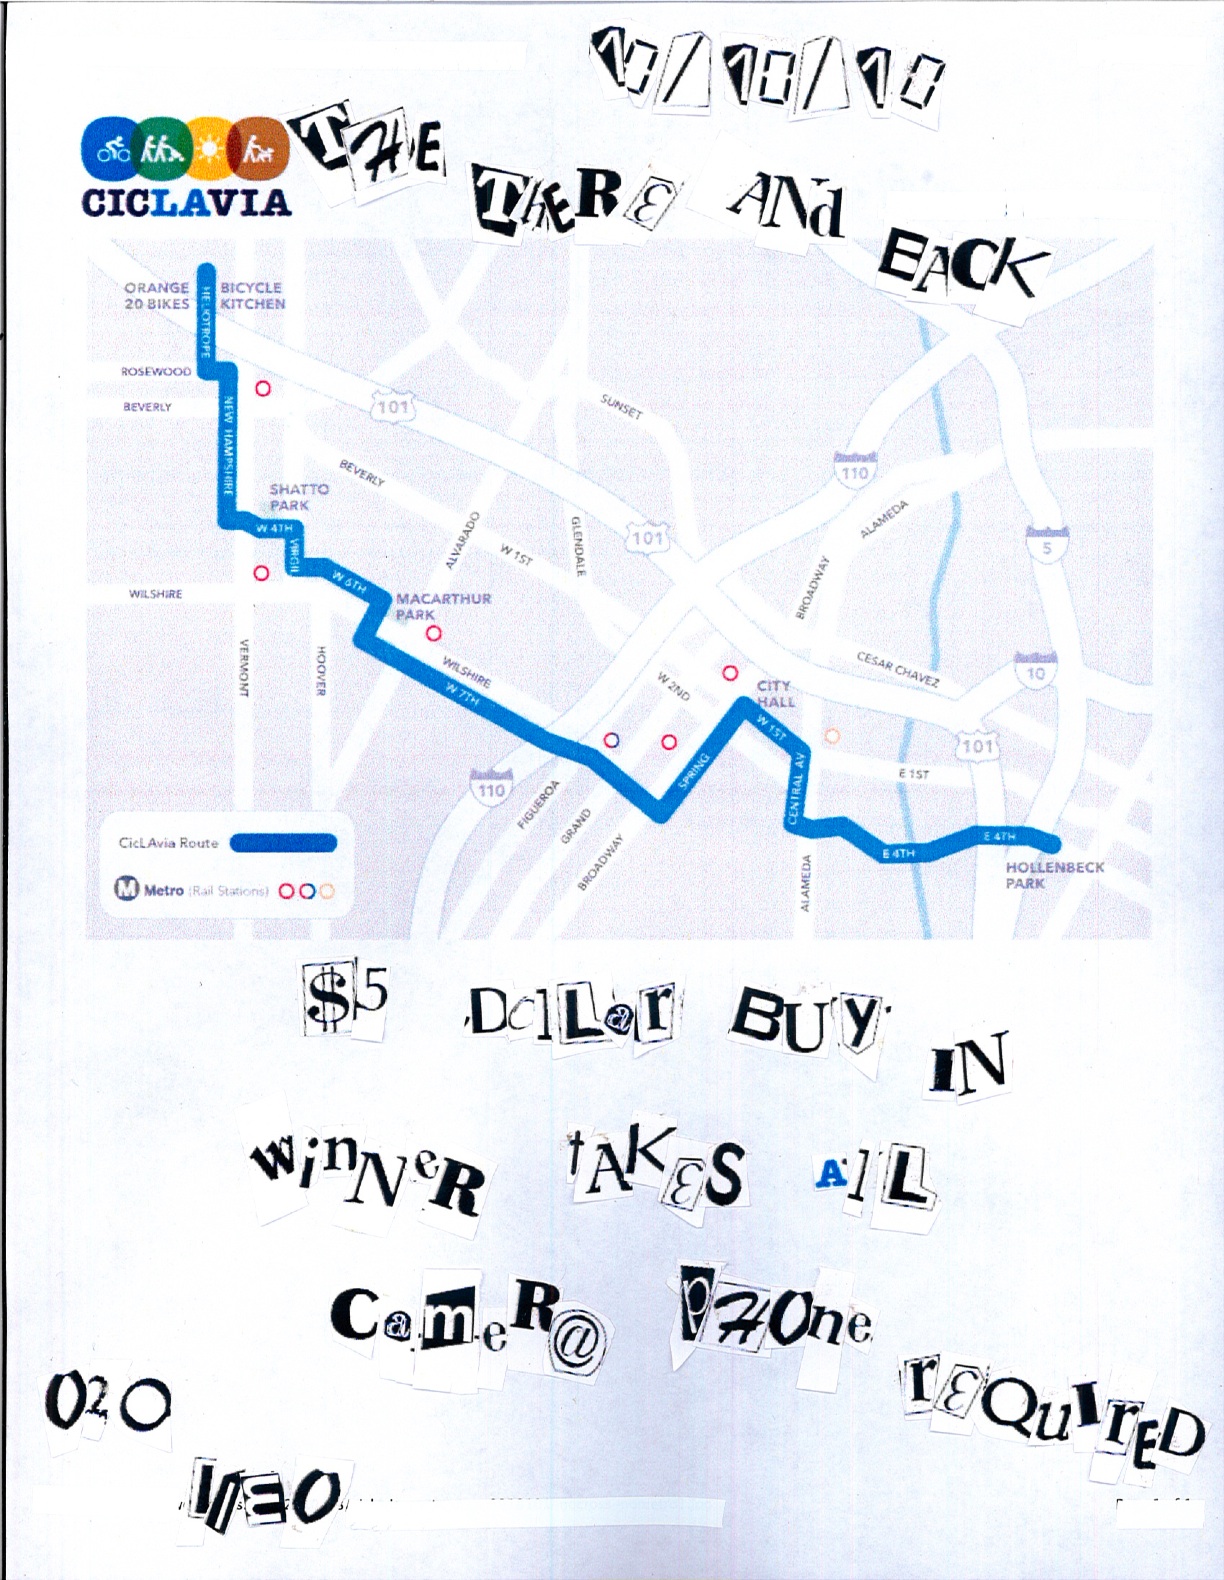 10/10/10
THE
CICLAVIA
ThERE ANd
BACK
ORANGE
20 BIKES
BICYCLE
KITCHEN
HELIOTROPE
ROSEWOOD
BEVERLY
101
SUNSET
NEW HAMPSHIRE
BEVERLY
110
SHATTO
PARK
ALVARADO
GLENDALE
101
ALAMEDA
W 4TH
W 1ST
5
VIRGIL
W 6TH
BROADWAY
WILSHIRE
MACARTHUR
PARK
VERMONT
HOOVER
WILSHIRE
W 7TH
W 2ND
CESAR CHAVEZ
10
CITY
HALL
W 1ST
101
SPRING
E 1ST
110
CENTRAL AV
FIGUEROA
GRAND
BROADWAY
ALAMEDA
E 4TH
E 4TH
HOLLENBECK
PARK
CicLAvia Route
M Metro (Rail Stations)
$5 DolLar BUY
IN
WinNeR tAKES AlL
CameR@ pHOne
rEQuIrED
020